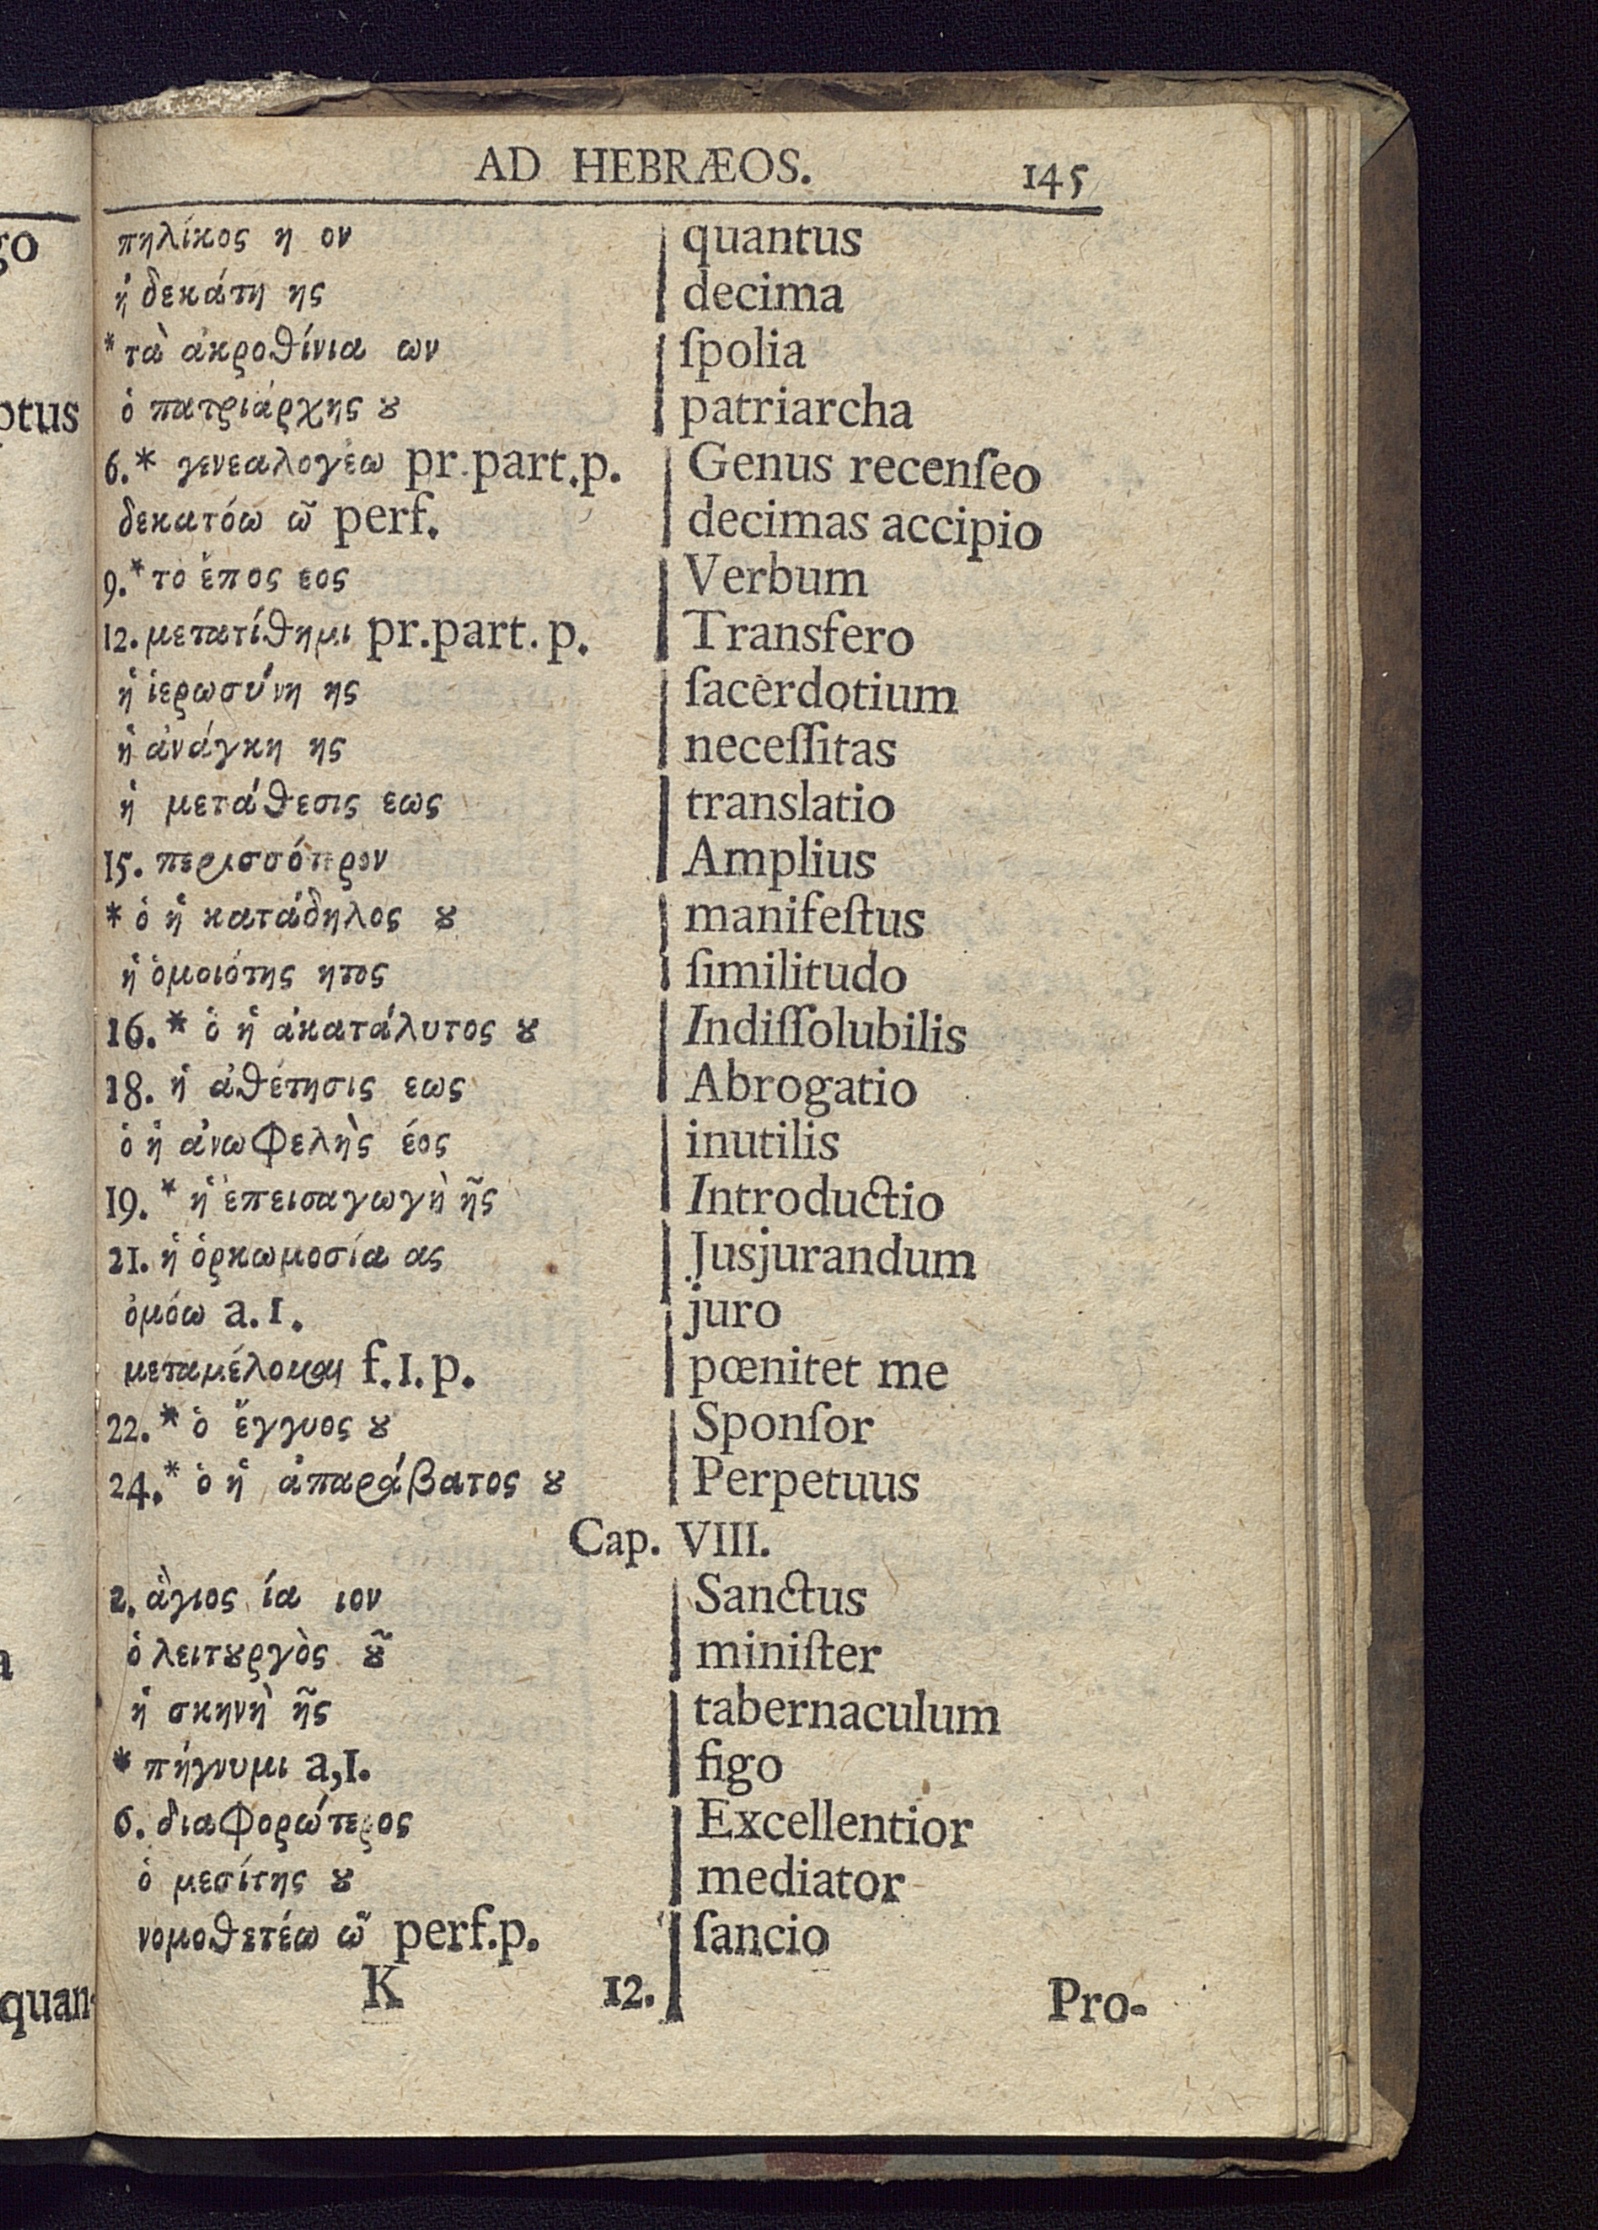 AD HEBRÆOS. 145
πηλίκος η ον quantus
ἡ δεκάτη ης decima
* τὰ ἀκροθίνια ων ſpolia
ὁ πατριάρχης ȣ patriarcha
6.* γενεαλογέω pr.part.p. Genus recenſeo
δεκατόω ῶ perf. decimas accipio
9.* το ἔπος εος Verbum
12. μετατίθημι pr.part.p. Transfero
ἡ ἱερωσύνη ης ſacerdotium
ἡ ἀνάγκη ης neceſſitas
ἡ μετάθεσις εως translatio
15. περισσότερον Amplius
* ὁ ἡ κατάδηλος ȣ manifeſtus
ἡ ὁμοιότης ητος ſimilitudo
16.* ὁ ἡ ἀκατάλυτος ȣ Indiſſolubilis
18. ἡ ἀθέτησις εως Abrogatio
ὁ ἡ ἀνωφελὴς έος inutilis
19. * ἡ ἐπεισαγωγὴ ῆς Introductio
21. ἡ ὁρκωμοσία ας Jusjurandum
ὀμόω a.1. juro
μεταμέλομαι f.1.p. pœnitet me
22.* ὁ ἔγγυος ȣ Sponſor
24.* ὁ ἡ ἀπαράβατος ȣ Perpetuus
Cap. VIII.
2. ἅγιος ία ιον Sanctus
ὁ λειτȣργὸς ȣ͂ miniſter
ἡ σκηνὴ ῆς tabernaculum
* πήγνυμι a,1. figo
6. διαφορώτερος Excellentior
ὁ μεσίτης ȣ mediator
νομοθετέω ῶ perf.p. ſancio
K 12. Pro-
go
ptus
a
quan-